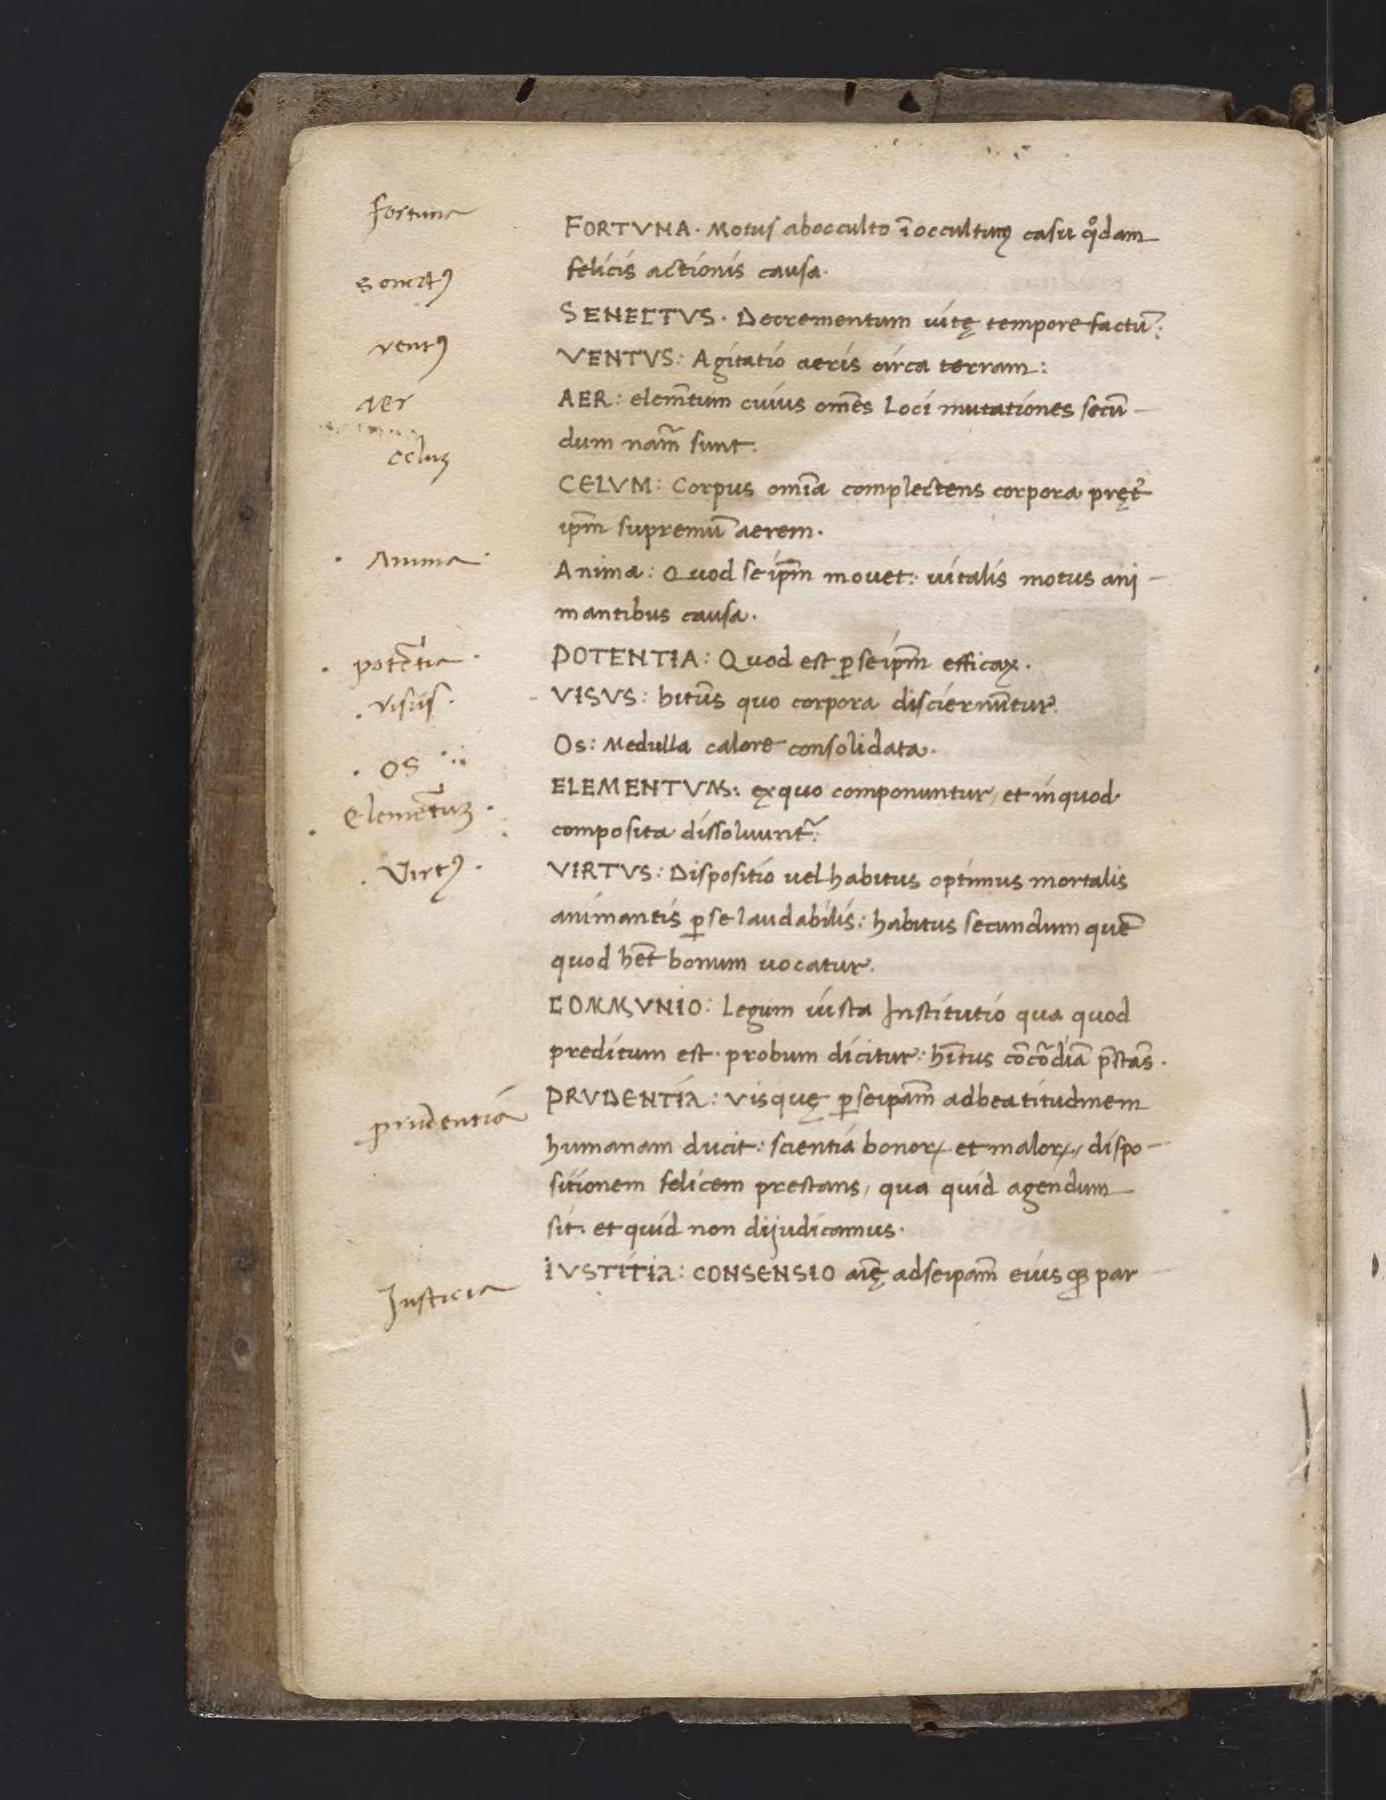 fortuna
FORTVNA · Motus abocculto ī occultuꝫ casu qͦdam
felicis actionis causa·
senectꝰ
SENECTVS · Decrementum uitę tempore factū:
ventꝰ
VENTVS: Agitatio aeris circa terram:
aer
AER: elemt̄um cuius om̄es Loci mutationes secū-
dum nam̄ sunt.
celuꝫ
CELVM: Corpus om̄ia complectens corpora pręt̄
ipm̄ supremū aerem.
· Anima ·
Anima: Quod seip̄m mouet: uitalis motus ani-
mantibus causa.
· potētia ·
POTENTIA: Quod est ꝑ seip̄m efficax.
· visus ·
VISVS: hit̄us quo corpora disciernūtur.
· OS
Os: Medulla calore consolidata.
· Elemētuꝫ ·
ELEMENTVM: ęx quo componuntur, et in quod
composita dissoluunt̄:
· Virtꝰ ·
VIRTVS: Dispositio uel habitus optimus mortalis
animantis ꝑ se laudabilis: habitus secundum quē
quod het̄ bonum uocatur.
COMMVNIO: Legum iusta Institutio qua quod
preditum est· probum dicitur: hīt̄us cōcōdiā p̄stās.
prudentia
PRVDENTIA: Vis quę ꝑ seipam̄ ad beatitudinem
humanam ducit: scientia bonoꝝ et maloꝝ, dispo-
sitionem felicem prestans, qua quid agendum
sit· et quid non dijudicamus·
Justicia
IVSTITIA: CONSENSIO aīę ad seipam̄ eiusqꝫ par-